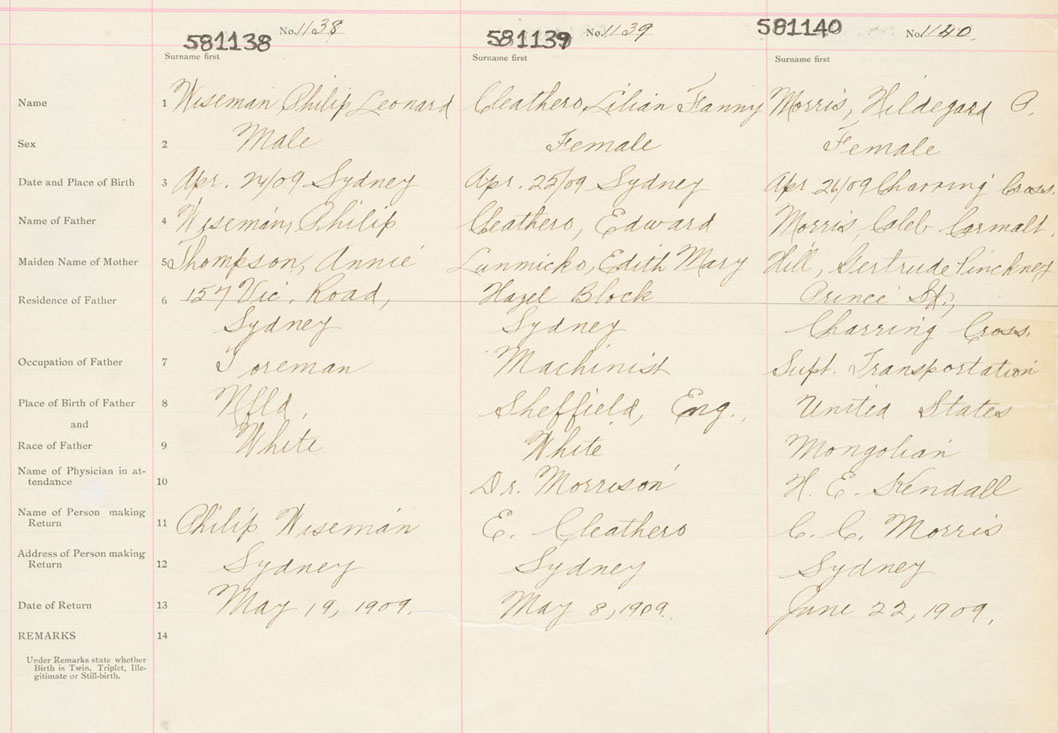 No. 1138 No. 1139 No. 1140
581138 581139 581140
Surname first Surname first Surname first
Name 1 Wiseman Philip Leonard Cleathero, Lilian Fanny Morris, Hildegard P.
Sex 2 Male Female Female
Date and Place of Birth 3 Apr. 24/09 Sydney Apr. 25/09 Sydney Apr 26/09 Charring Cross.
Name of Father 4 Wiseman, Philip Cleathero, Edward Morris, Caleb Carmalt.
Maiden Name of Mother 5 Thompson, Annie Edith Mary Hill, Gertrude Pinckney
Residence of Father 6 157 Vic. Road, Hazel Block Prince St.,
Sydney Sydney Charring Cross.
Occupation of Father 7 Foreman Machinist Supt. Transportation
Place of Birth of Father 8 Nfld. Sheffield, Eng., United States
and
Race of Father 9 White White Mongolian
Name of Physician in at-
tendance 10 Dr. Morrison H. E. Kendall
Name of Person making
Return 11 Philip Wiseman E. Cleathero C. C. Morris
Address of Person making
Return 12 Sydney Sydney Sydney
Date of Return 13 May 19, 1909. May 8, 1909. June 22, 1909.
REMARKS 14
Under Remarks state whether
Birth is Twin, Triplet, Ille-
gitimate or Still-birth.